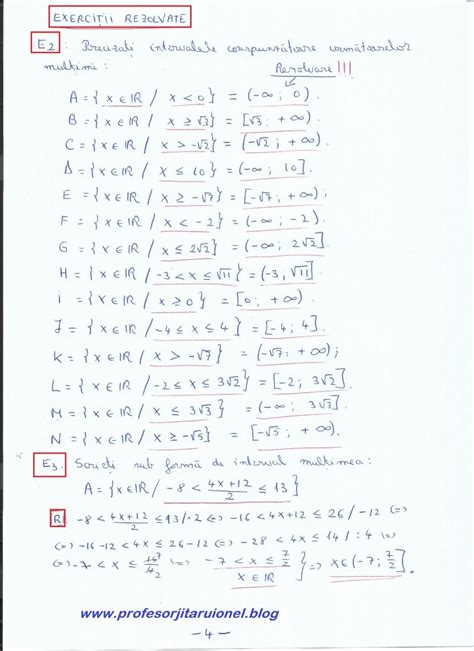 EXERCIȚII REZOLVATE
E2 : Precizați intervalele corespunzătoare următoarelor
mulțimi : Rezolvare !!!
A = { x ∈ IR / x < 0 } = (-∞ ; 0).
B = { x ∈ IR / x ≥ √3 } = [√3 ; +∞)
C = { x ∈ IR / x > -√2 } = (-√2 ; +∞)
Δ = { x ∈ IR / x ≤ 10 } = (-∞ ; 10].
E = { x ∈ IR / x ≥ -√7 } = [-√7 ; +∞).
F = { x ∈ IR / x < -2 } = (-∞ ; -2).
G = { x ∈ IR / x ≤ 2√2 } = (-∞ ; 2√2].
H = { x ∈ IR / -3 < x ≤ √11 } = (-3, √11].
i = { x ∈ IR / x ≥ 0 } = [0 ; +∞).
J = { x ∈ IR / -4 ≤ x ≤ 4 } = [-4 ; 4].
K = { x ∈ IR / x > -√7 } = (-√7 ; +∞) ;
L = { x ∈ IR / -2 ≤ x ≤ 3√2 } = [-2 ; 3√2].
M = { x ∈ IR / x ≤ 3√3 } = (-∞ ; 3√3].
N = { x ∈ IR / x ≥ -√5 } = [-√5 ; +∞).
E3. Scrieți sub formă de interval mulțimea :
A = { x ∈ IR / -8 < (4x+12)/2 ≤ 13 }
R: -8 < (4x+12)/2 ≤ 13 / ·2 (=) -16 < 4x+12 ≤ 26 / -12 (=)
(=) -16-12 < 4x ≤ 26-12 (=) -28 < 4x ≤ 14 / :4 (=)
(=) -7 < x ≤ 14⁷/4₂ (=) -7 < x ≤ 7/2 x ∈ IR } => x ∈ (-7 ; 7/2].
www.profesorjitaruionel.blog
-4-